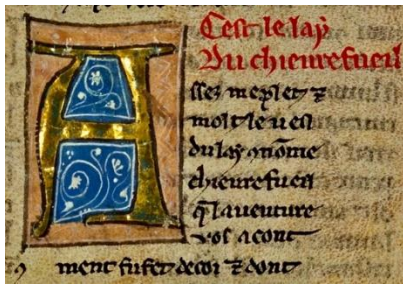 C'est le lay
Du chieurefueil
A ssez me plest z
molt le ueil
du lay q̄ nōme
chieurefueil
q̄ la uenture
vos acont
ment fu fet de coi z dont